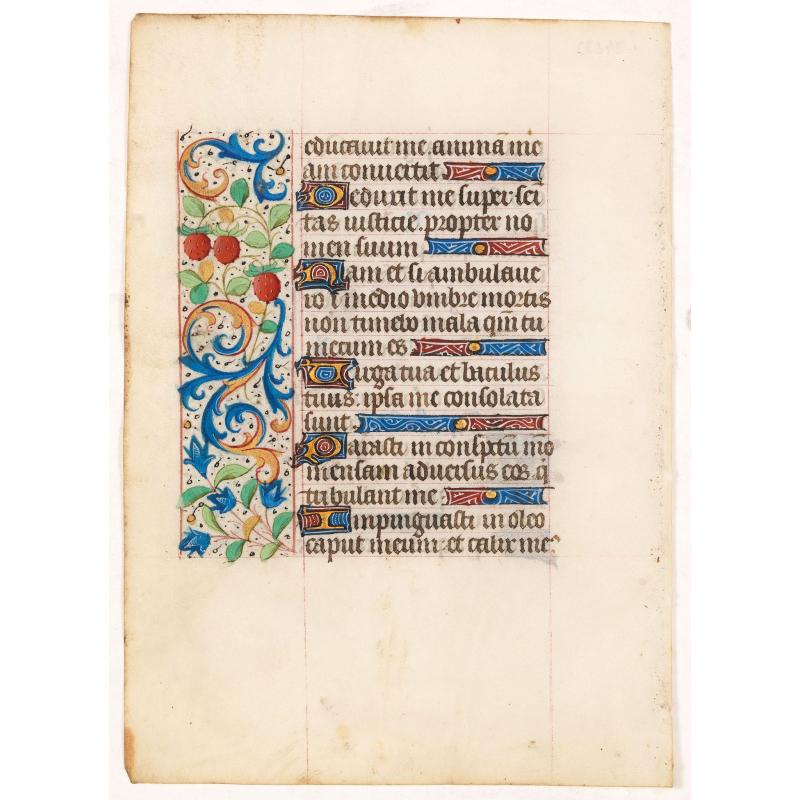 educauit me. anima me
am conuertit
Deduxit me super semi
tas iusticie. propter no
men suum
Nam et si ambulaue
ro i medio vmbre mortis
non timebo mala qm̄ tu
mecum es
Uirga tua et baculus
tuus: ipsa me consolata
sunt
Parasti in conspectu mō
mensam aduersus eos. q̄
tribulant me
Impinguasti in oleo
caput meum: et calix me⁹